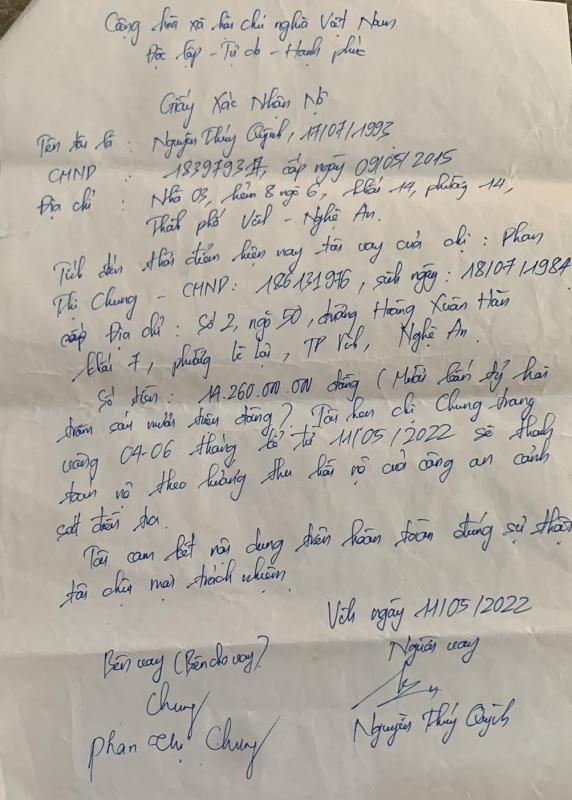 Cộng hòa xã hội chủ nghĩa Việt Nam
Độc lập - Tự do - Hạnh phúc
Giấy Xác Nhận Nợ
Tên tôi là : Nguyễn Thúy Quỳnh, 17/07/1993
CMND : cấp ngày 09/05/2015
Địa chỉ : Nhà 03, hẻm 8 ngõ 6, khối 14, phường 14,
Thành phố Vinh - Nghệ An.
Tính đến thời điểm hiện nay tôi vay của chị : Phan
Thị Chung - CMND: 186131976, sinh ngày: 18/07/1984
cấp Địa chỉ : Số 2, ngõ 50, đường Hoàng Xuân Hãn
khối 7, phường Lê Lợi, TP Vinh, Nghệ An.
Số tiền : 14.260.000.000 đồng (Mười bốn tỷ hai
trăm sáu mươi triệu đồng). Tôi hẹn chị Chung trong
vòng 04-06 tháng kể từ 11/05/2022 sẽ thanh
toán nợ theo hướng thu hồi nợ của công an cảnh
sát điều tra.
Tôi cam kết nội dung trên hoàn toàn đúng sự thật
tôi chịu mọi trách nhiệm.
Vinh ngày 11/05/2022
Bên vay (Bên cho vay) Người vay
Chung
Phan Thị Chung Nguyễn Thúy Quỳnh